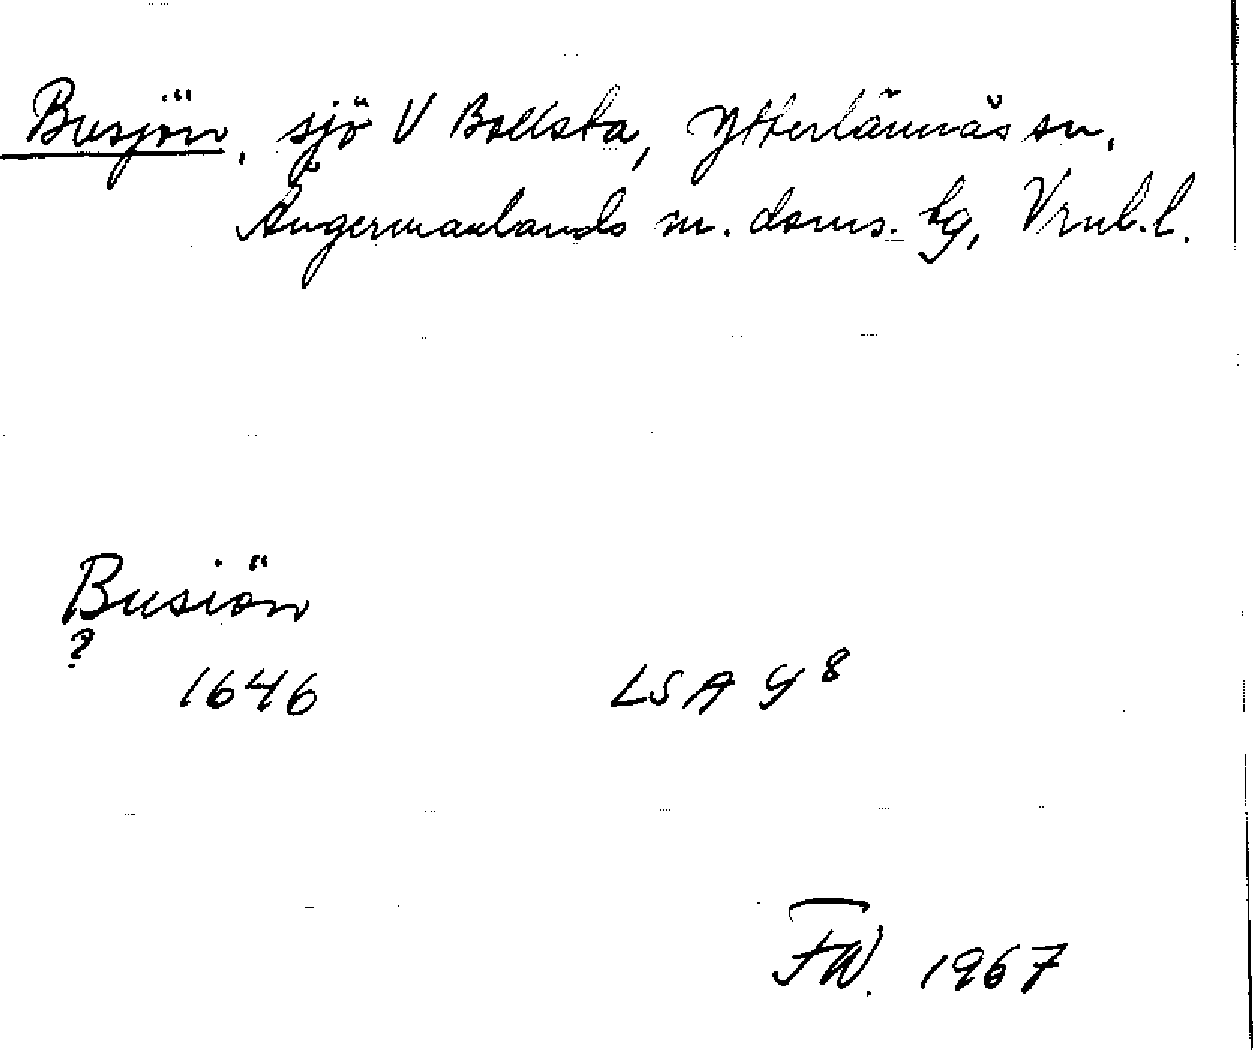 Busjön, sjö V Bollsta, Ytterlännäs sn,
Ångermanlands m. doms. hg, Vrnl. l.
Busiön
?
1646 LSA Y8
FW. 1967